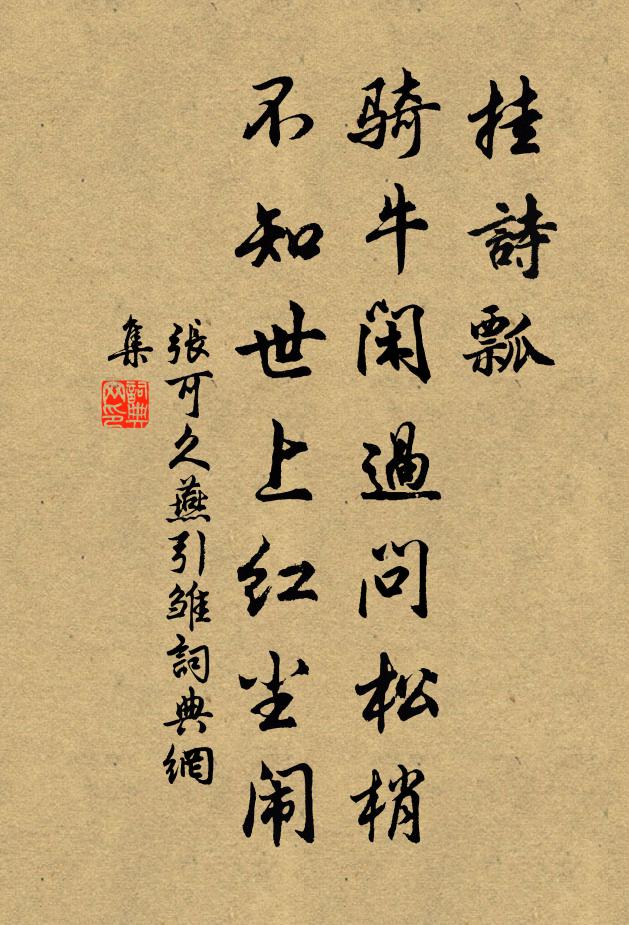 挂詩瓢
騎牛閑過問松梢
不知世上红尘闹
張可久燕引雏詞典網
集
詞典
网印